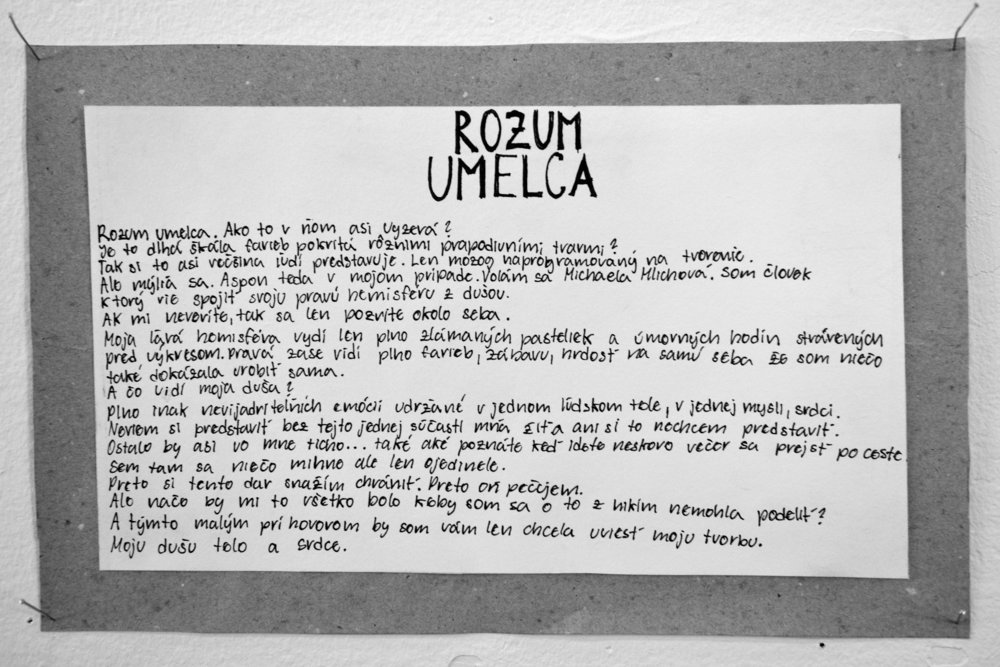 ROZUM
UMELCA
Rozum umelca. Ako to v ňom asi vyzerá?
Je to dlhá škála farieb pokritá rôznimi prapodivními tvarmi?
Tak si to asi večšina ľudí predstavuje. Len mozog naprogramovaný na tvorenie.
Ale mýlia sa. Aspon teda v mojom prípade. Volám sa Michaela Mlichová. Som človek
ktorý vie spojiť svoju pravú hemisféru z dušou.
Ak mi neveríte, tak sa len pozrite okolo seba.
Moja ľavá hemisféra vydí len plno zlámaných pasteliek a úmorných hodín strávených
pred výkresom. Pravá zase vidí plno farieb, zábavu, hrdosť na samú seba že som niečo
také dokázala urobiť sama.
A čo vidí moja duša?
Plno inak nevijadriteľních emócií udržané v jednom ľúdskom tele, v jednej mysli, srdci.
Neviem si predstaviť bez tejto jednej súčasti mňa žiť a ani si to nechcem predstaviť.
Ostalo by asi vo mne ticho... také aké poznáte keď idete neskoro večer sa prejsť po ceste.
Sem tam sa niečo mihne ale len ojedinele.
Preto si tento dar snažím chrániť. Preto oň pečujem.
Ale načo by mi to všetko bolo keby som sa o to z nikím nemohla podeliť?
A týmto malým príhovorom by som vám len chcela uviesť moju tvorbu.
Moju dušu telo a srdce.